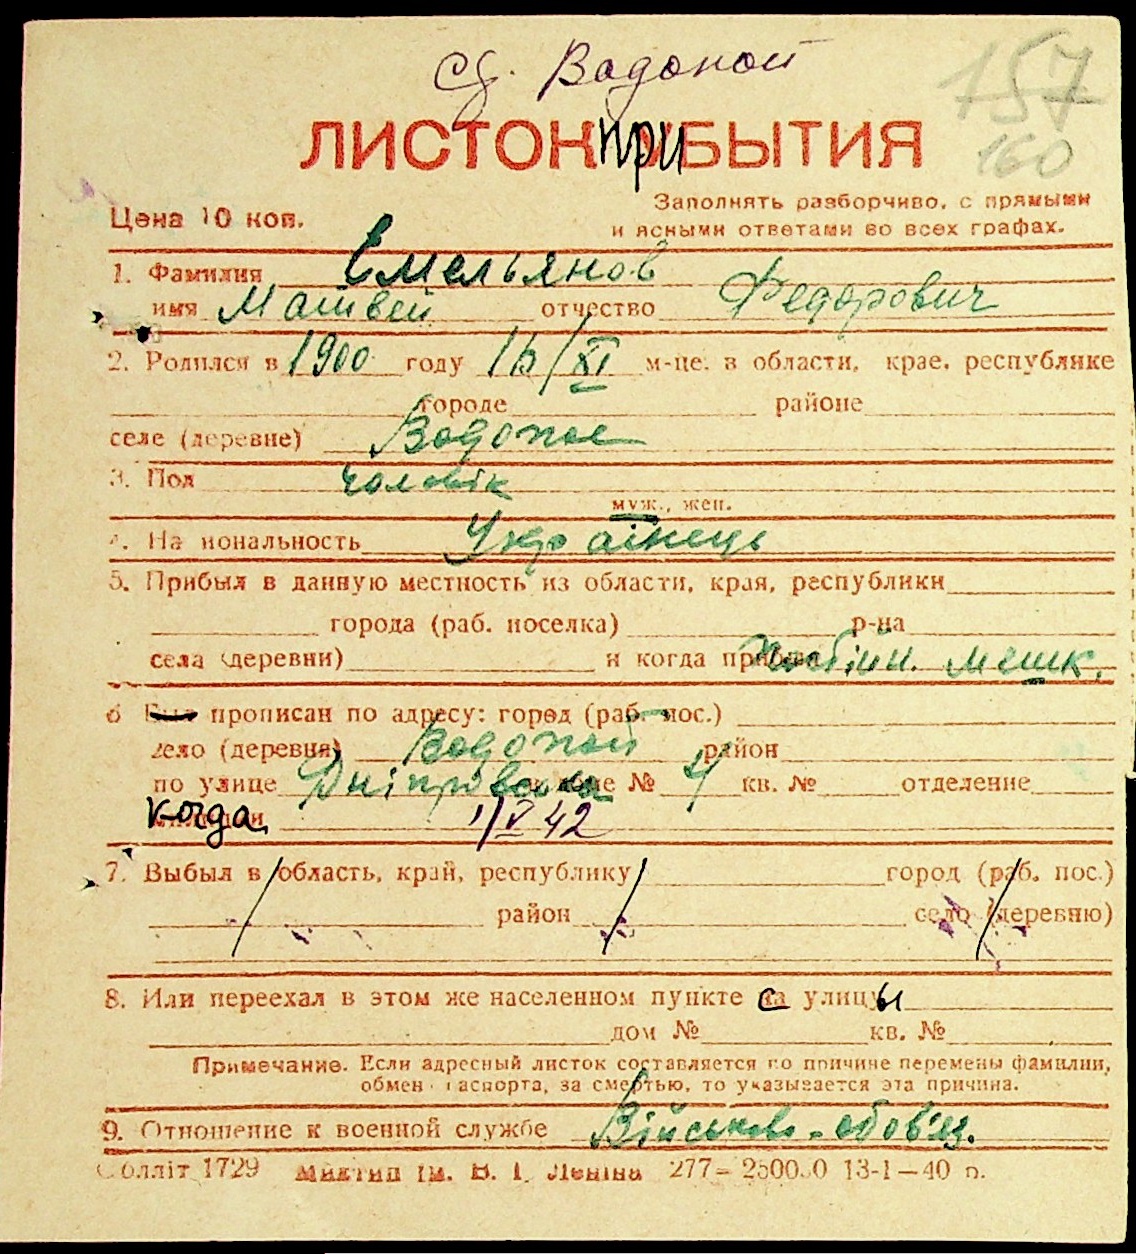 Сд. Водопой
157
160
ЛИСТОК ПРИБЫТИЯ
Заполнять разборчиво, с прямыми
Цена 10 коп.
и ясными ответами во всех графах.
1. Фамилия Емельянов
имя Матвей отчество Федорович
2. Родился в 1900 году 16/XI м-це. в области, крае, республике
городе районе
селе (деревне) Водопое
3. Пол чоловік
муж., жен.
4. Национальность Українець
5. Прибыл в данную местность из области, края, республики
города (раб. поселка) р-на
села (деревни) и когда прибыл Постійн. мешк.
6 Был прописан по адресу: город (раб. пос.)
село (деревня) Водопой район
по улице Дніпровська доме № 4 кв. № отделение
когда 1/V 42
7. Выбыл в область, край, республику город (раб. пос.)
район село (деревню)
8. Или переехал в этом же населенном пункте с улицы
дом № кв. №
Примечание. Если адресный листок составляется по причине перемены фамилии,
обмен паспорта, за смертью, то указывается эта причина.
9. Отношение к военной службе Військово-обов'яз.
Облліт 1729 Миктип ім. В. І. Леніна 277—250000 13-1—40 р.